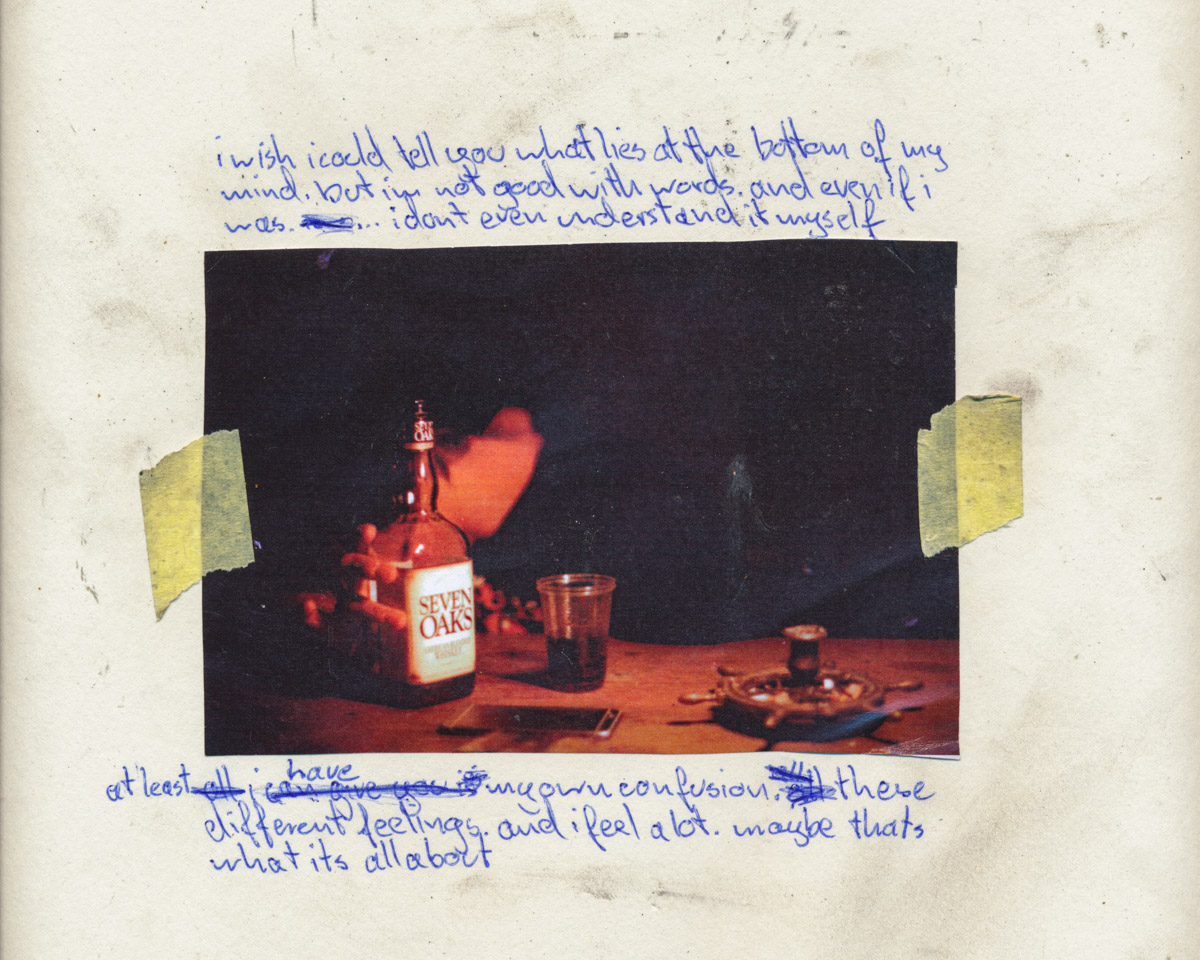 i wish i could tell you what lies at the bottom of my
mind. but im not good with words. and even if i
was. ... i dont even understand it myself
SEVEN
OAKS
SEVEN
OAKS
WHISKEY
have
at least all i can give you is my own confusion. all these
different feelings. and i feel a lot. maybe thats
what its all about